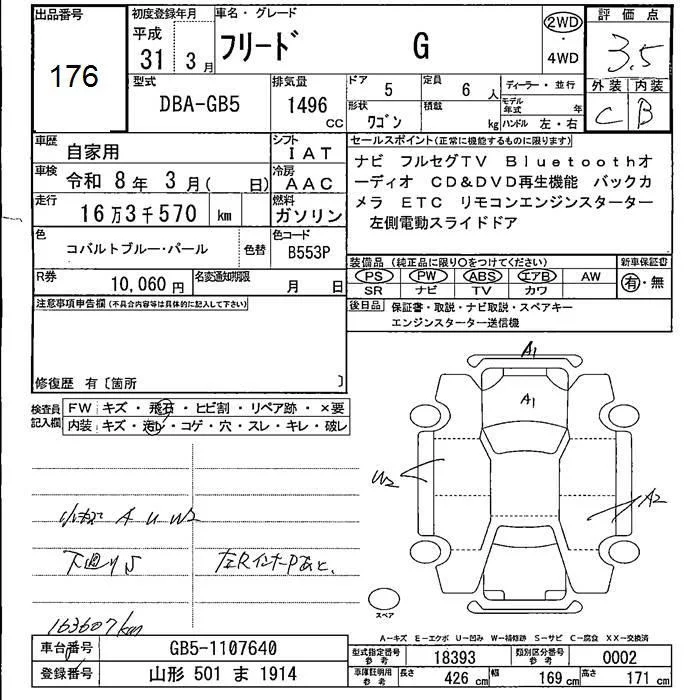 出品番号
176
初度登録年月
平成
31 3月
車名・グレード
フリード G
2WD
・
4WD
評価点
3.5
外装 内装
C B
型式
DBA-GB5
排気量
1496 CC
ドア 5
定員 6人
ディーラー・並行
形状 ワゴン
積載 kg
モデル年式 年
ハンドル 左・右
車歴 自家用
シフト IAT
車検 令和 8年 3月( 日)
冷房 AAC
走行 16万3千570 km
燃料 ガソリン
色 コバルトブルー・パール
色替
色コード B553P
R券 10,060円
名変通知期限 月 日
セールスポイント(正常に機能するものに限ります)
ナビ フルセグTV Bluetoothオ
ーディオ CD&DVD再生機能 バックカ
メラ ETC リモコンエンジンスターター
左側電動スライドドア
装備品(純正品に限り○をつけてください)
新車保証書
PS PW ABS エアB AW
SR ナビ TV カワ
有・無
後日品 保証書・取説・ナビ取説・スペアキー
エンジンスターター送信機
注意事項申告欄(不具合内容等は具体的に記入して下さい)
修復歴 有〔箇所 〕
検査員記入欄
FW キズ・飛石・ヒビ割・リペア跡・×要
内装 キズ・汚レ・コゲ・穴・スレ・キレ・破レ
A1
A1
W2
A2
小キズ A U W2
下廻りS
左RインナーPあと、
163607km
スペア
A-キズ E-エクボ U-凹み W-補修跡 S-サビ C-腐食 XX-交換済
車台番号 GB5-1107640
登録番号 山形 501 ま 1914
型式指定番号 参考 18393
類別区分番号 参考 0002
車庫証明用 参考 長さ 426cm 幅 169cm 高さ 171cm